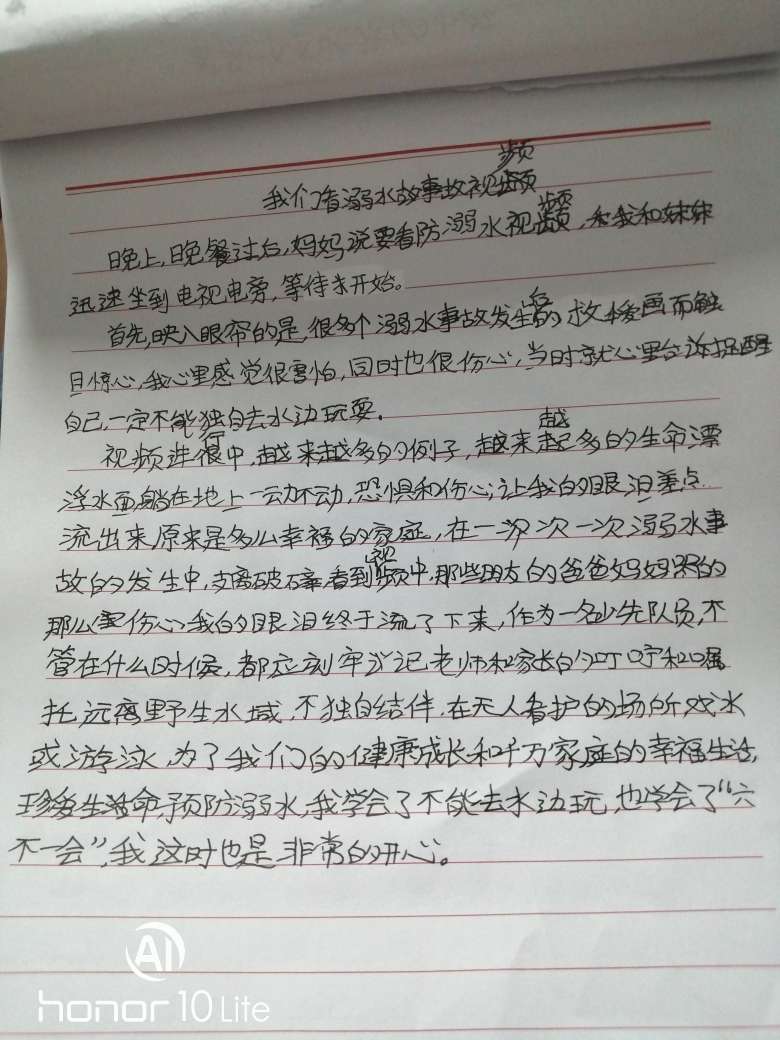 频
我们看溺水故事故视频
频
晚上,晚餐过后,妈妈说要看防溺水视频,我和妹妹
迅速坐到电视电旁,等待才开始。
首先,映入眼帘的是,很多个溺水事故发生的救援画面触
目惊心,我心里感觉很害怕,同时也很伤心,当时就心里告诉提醒
自己,一定不能独自去水边玩耍。
越
视频进行中,越来越多的例子,越来越多的生命漂
浮水面躺在地上一动不动,恐惧和伤心,让我的眼泪差点
流出来,原来是多么幸福的家庭,在一次次一次溺水事
视
故的发生中,支离破碎,看到频中,那些朋友的爸爸妈妈哭的
那么伤心,我的眼泪终于流了下来,作为一名少先队员,不
管在什么时候,都应刻牢记老师和家长的叮咛和嘱
托,远离野生水域,不独自结伴,在无人看护的场所戏水
或游泳,为了我们的健康成长和千万家庭的幸福生活,
珍爱生命,预防溺水,我学会了不能去水边玩,也学会了“六
不一会”,我这时也是非常的开心。
AI
honor 10 Lite